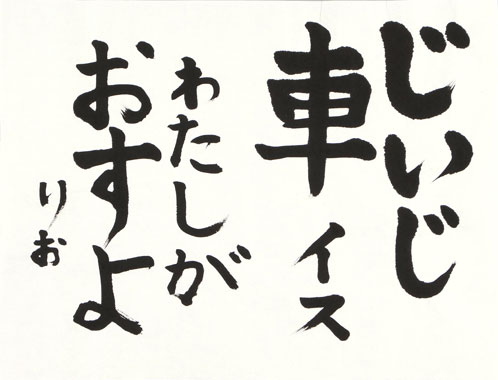 じいじ
車イス
わたしが
おすよ
りお